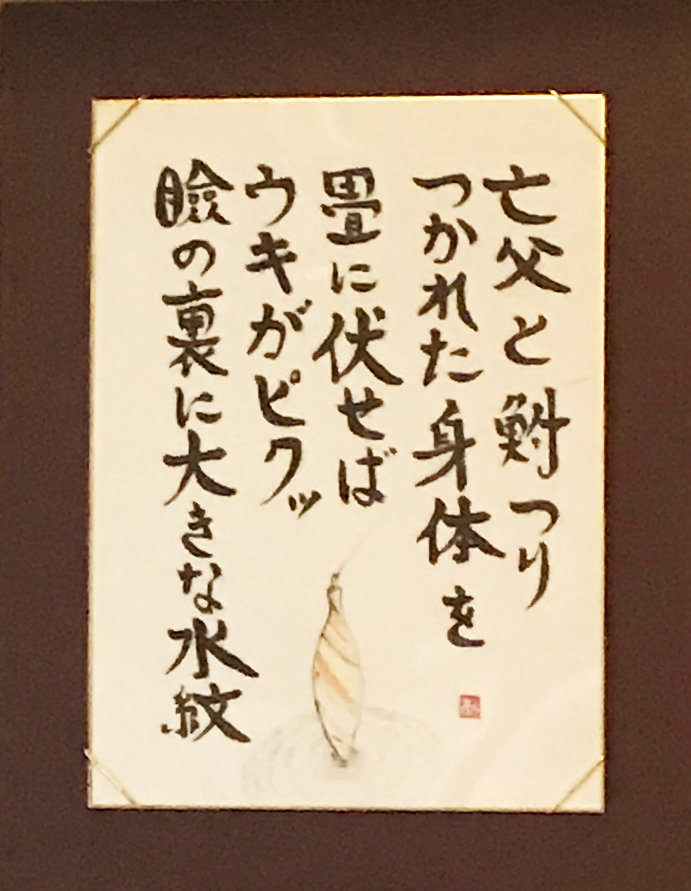 亡父と鮒つり
つかれた身体を
畳に伏せば
ウキがピクッ
瞼の裏に大きな水紋